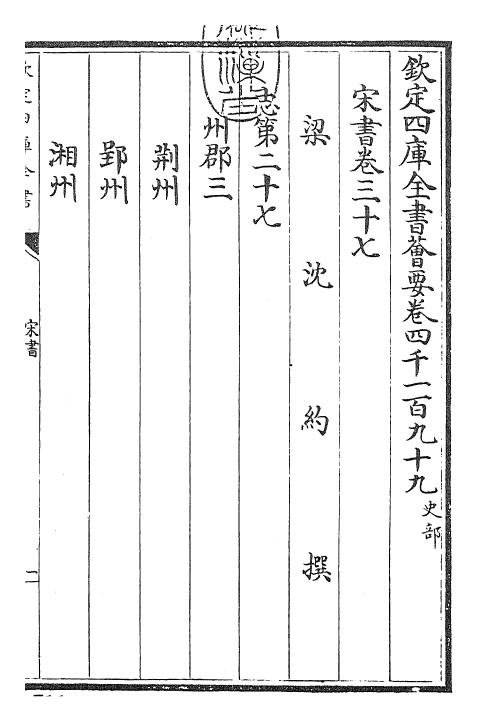 欽定四庫全書薈要卷四千一百九十九 史部
宋書卷三十七
梁 沈 約 撰
志第二十七
州郡三
荆州
郢州
湘州
欽定四庫全書
宋書